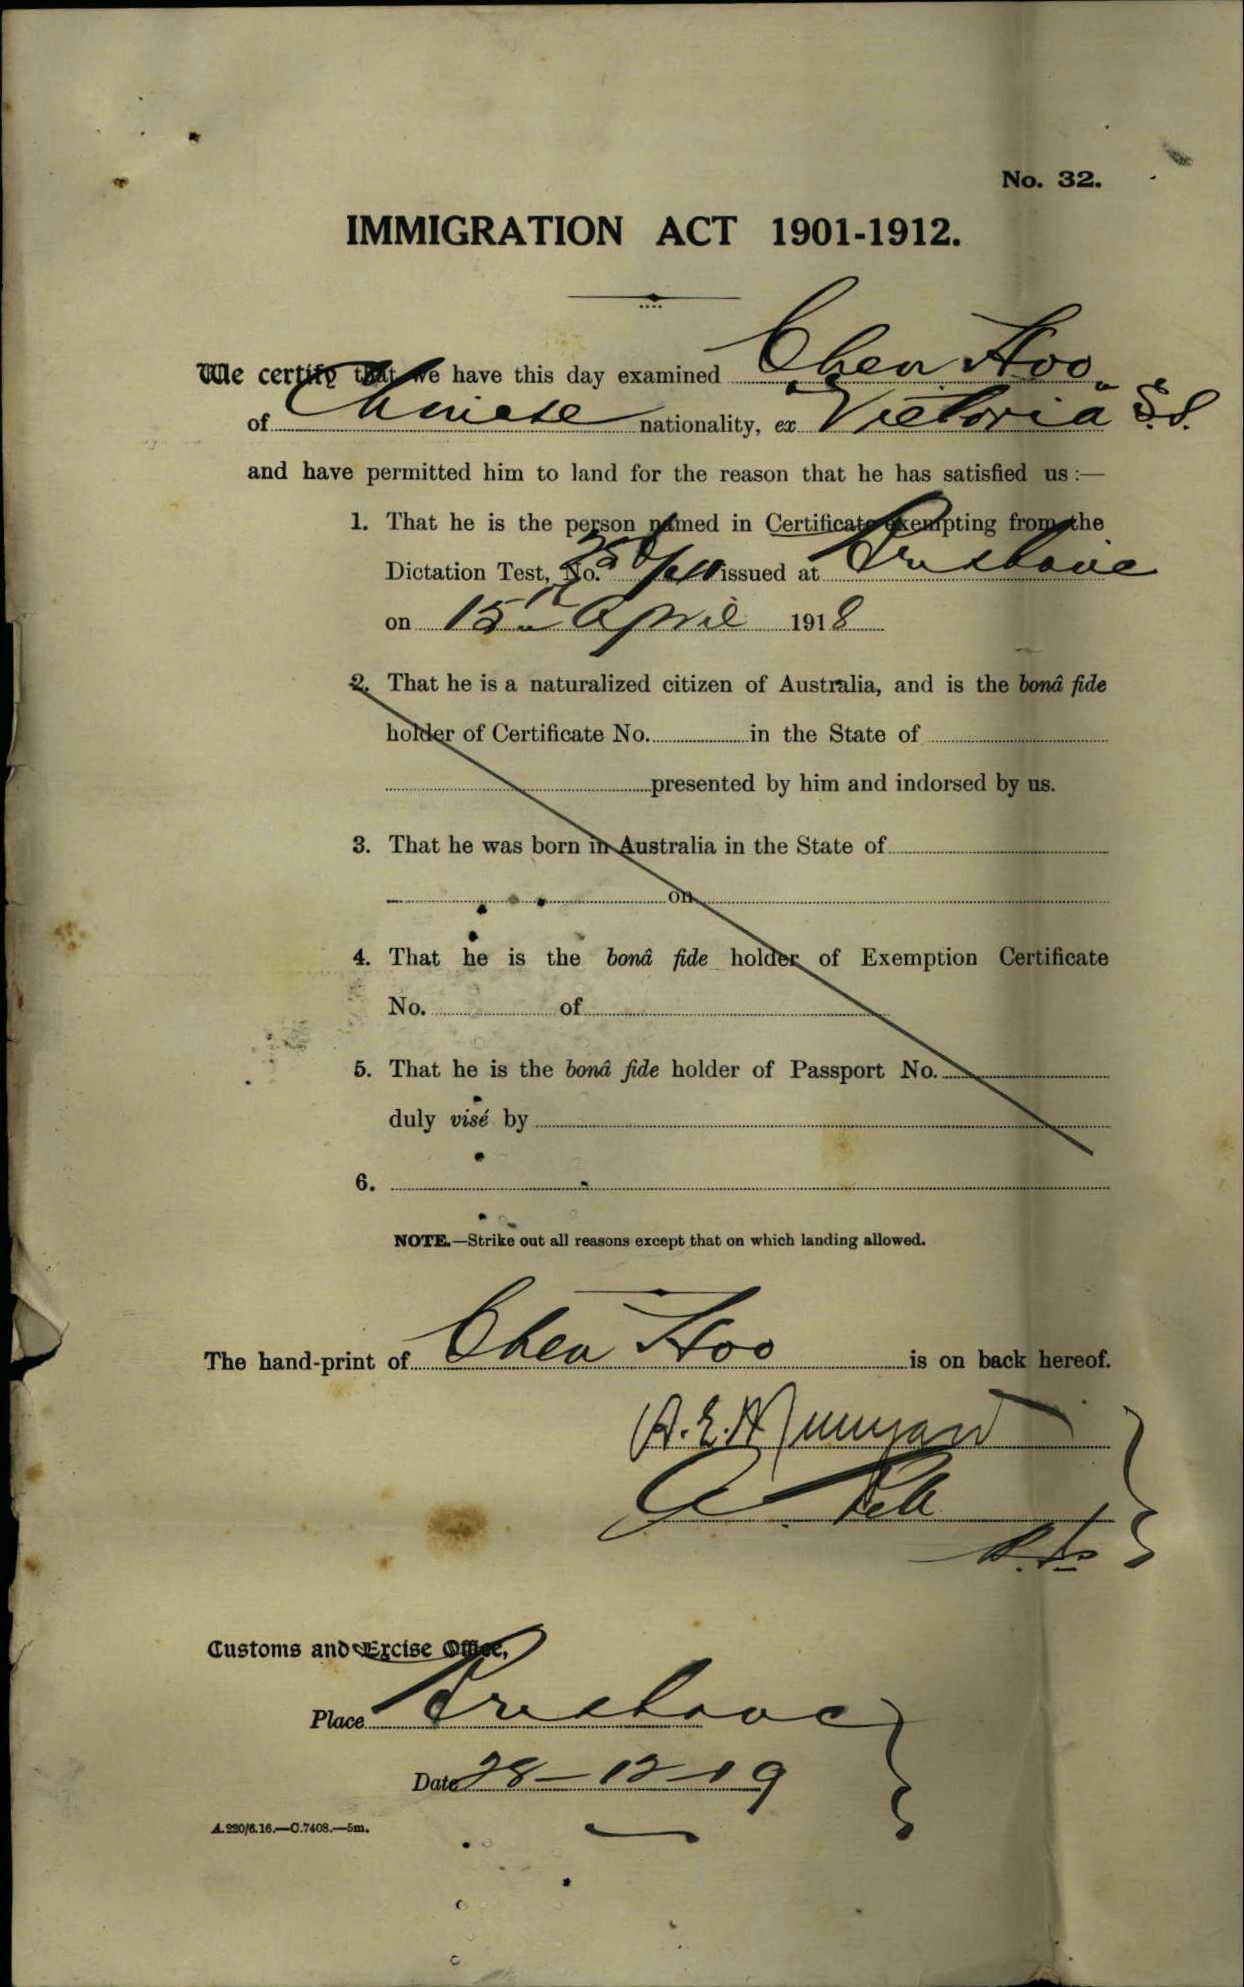 No. 32.
IMMIGRATION ACT 1901-1912.
We certify that we have this day examined Chea Hoo
of Chinese nationality, ex "Victoria" S.S.
and have permitted him to land for the reason that he has satisfied us :—
1. That he is the person named in Certificate exempting from the
Dictation Test, No. issued at Brisbane
on 15th April 1918
2. That he is a naturalized citizen of Australia, and is the bonâ fide
holder of Certificate No. in the State of
presented by him and indorsed by us.
3. That he was born in Australia in the State of
on
4. That he is the bonâ fide holder of Exemption Certificate
No. of
5. That he is the bonâ fide holder of Passport No.
duly visé by
6.
NOTE.—Strike out all reasons except that on which landing allowed.
The hand-print of Chea Hoo is on back hereof.
Customs and Excise Office,
Place Brisbane
Date 28-12-19
A.220/6.16.—C.7408.—5m.